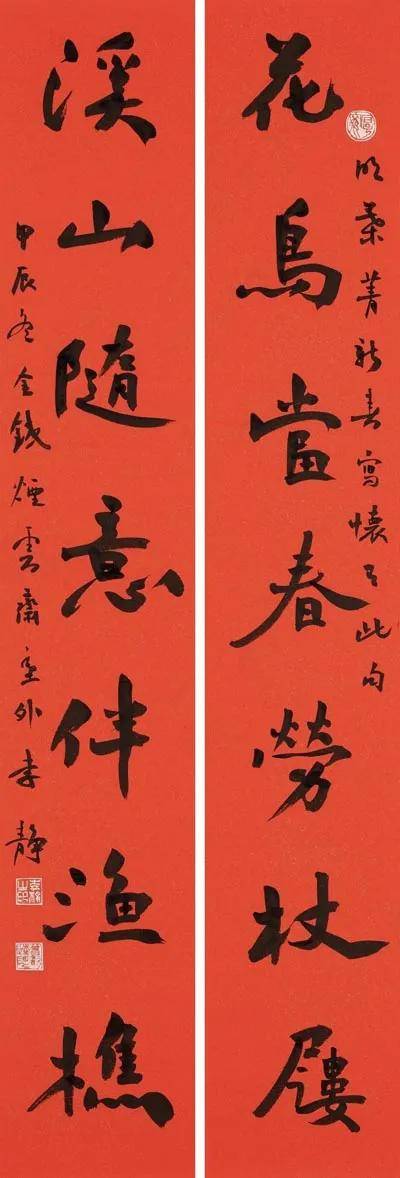 花鳥當春勞杖屨
明葉菁新春寫懷有此句
溪山隨意伴渔樵
甲辰冬金煙雲齋外李靜